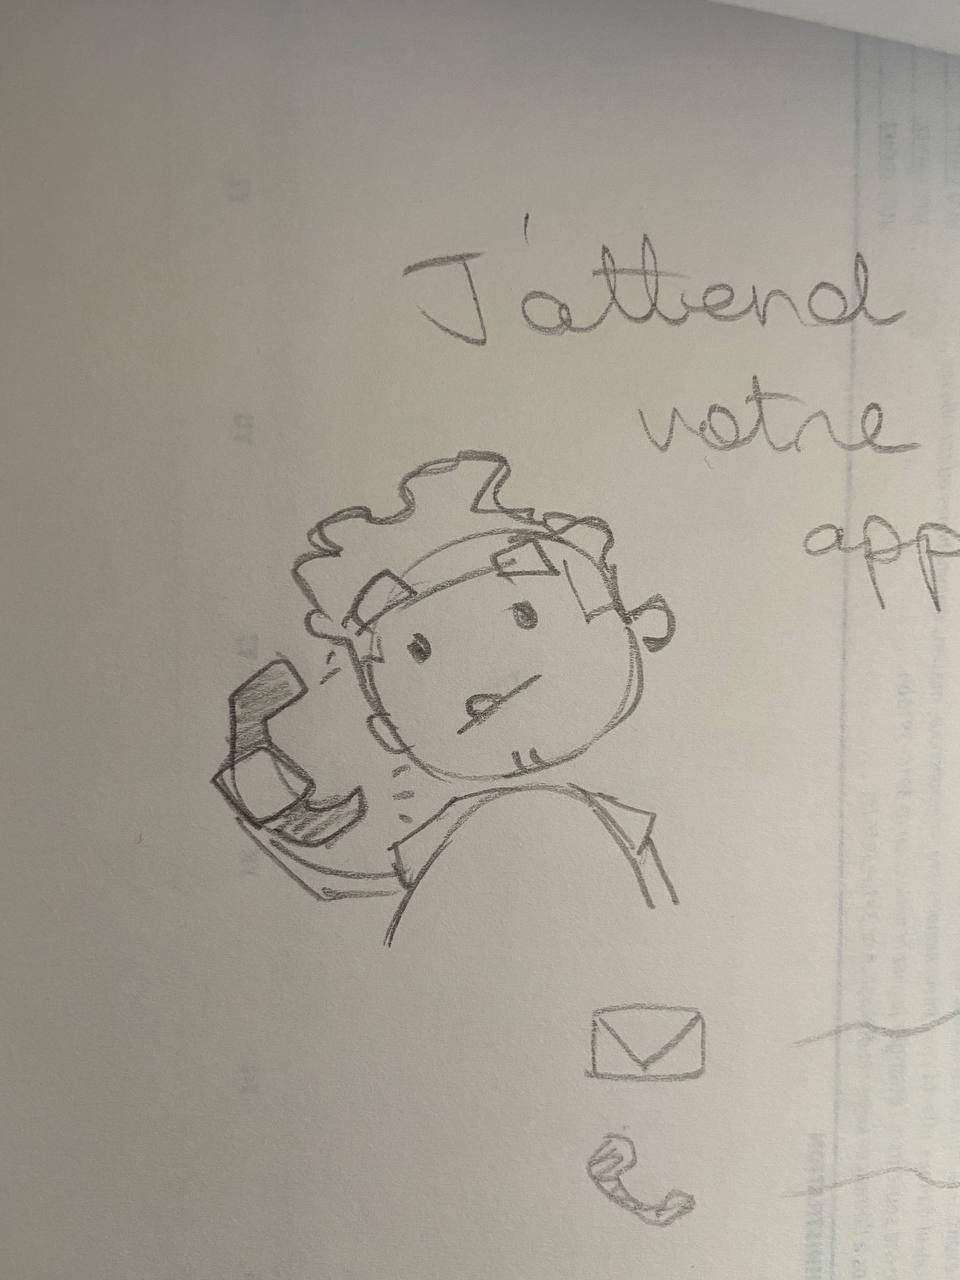 J'attend
votre
app